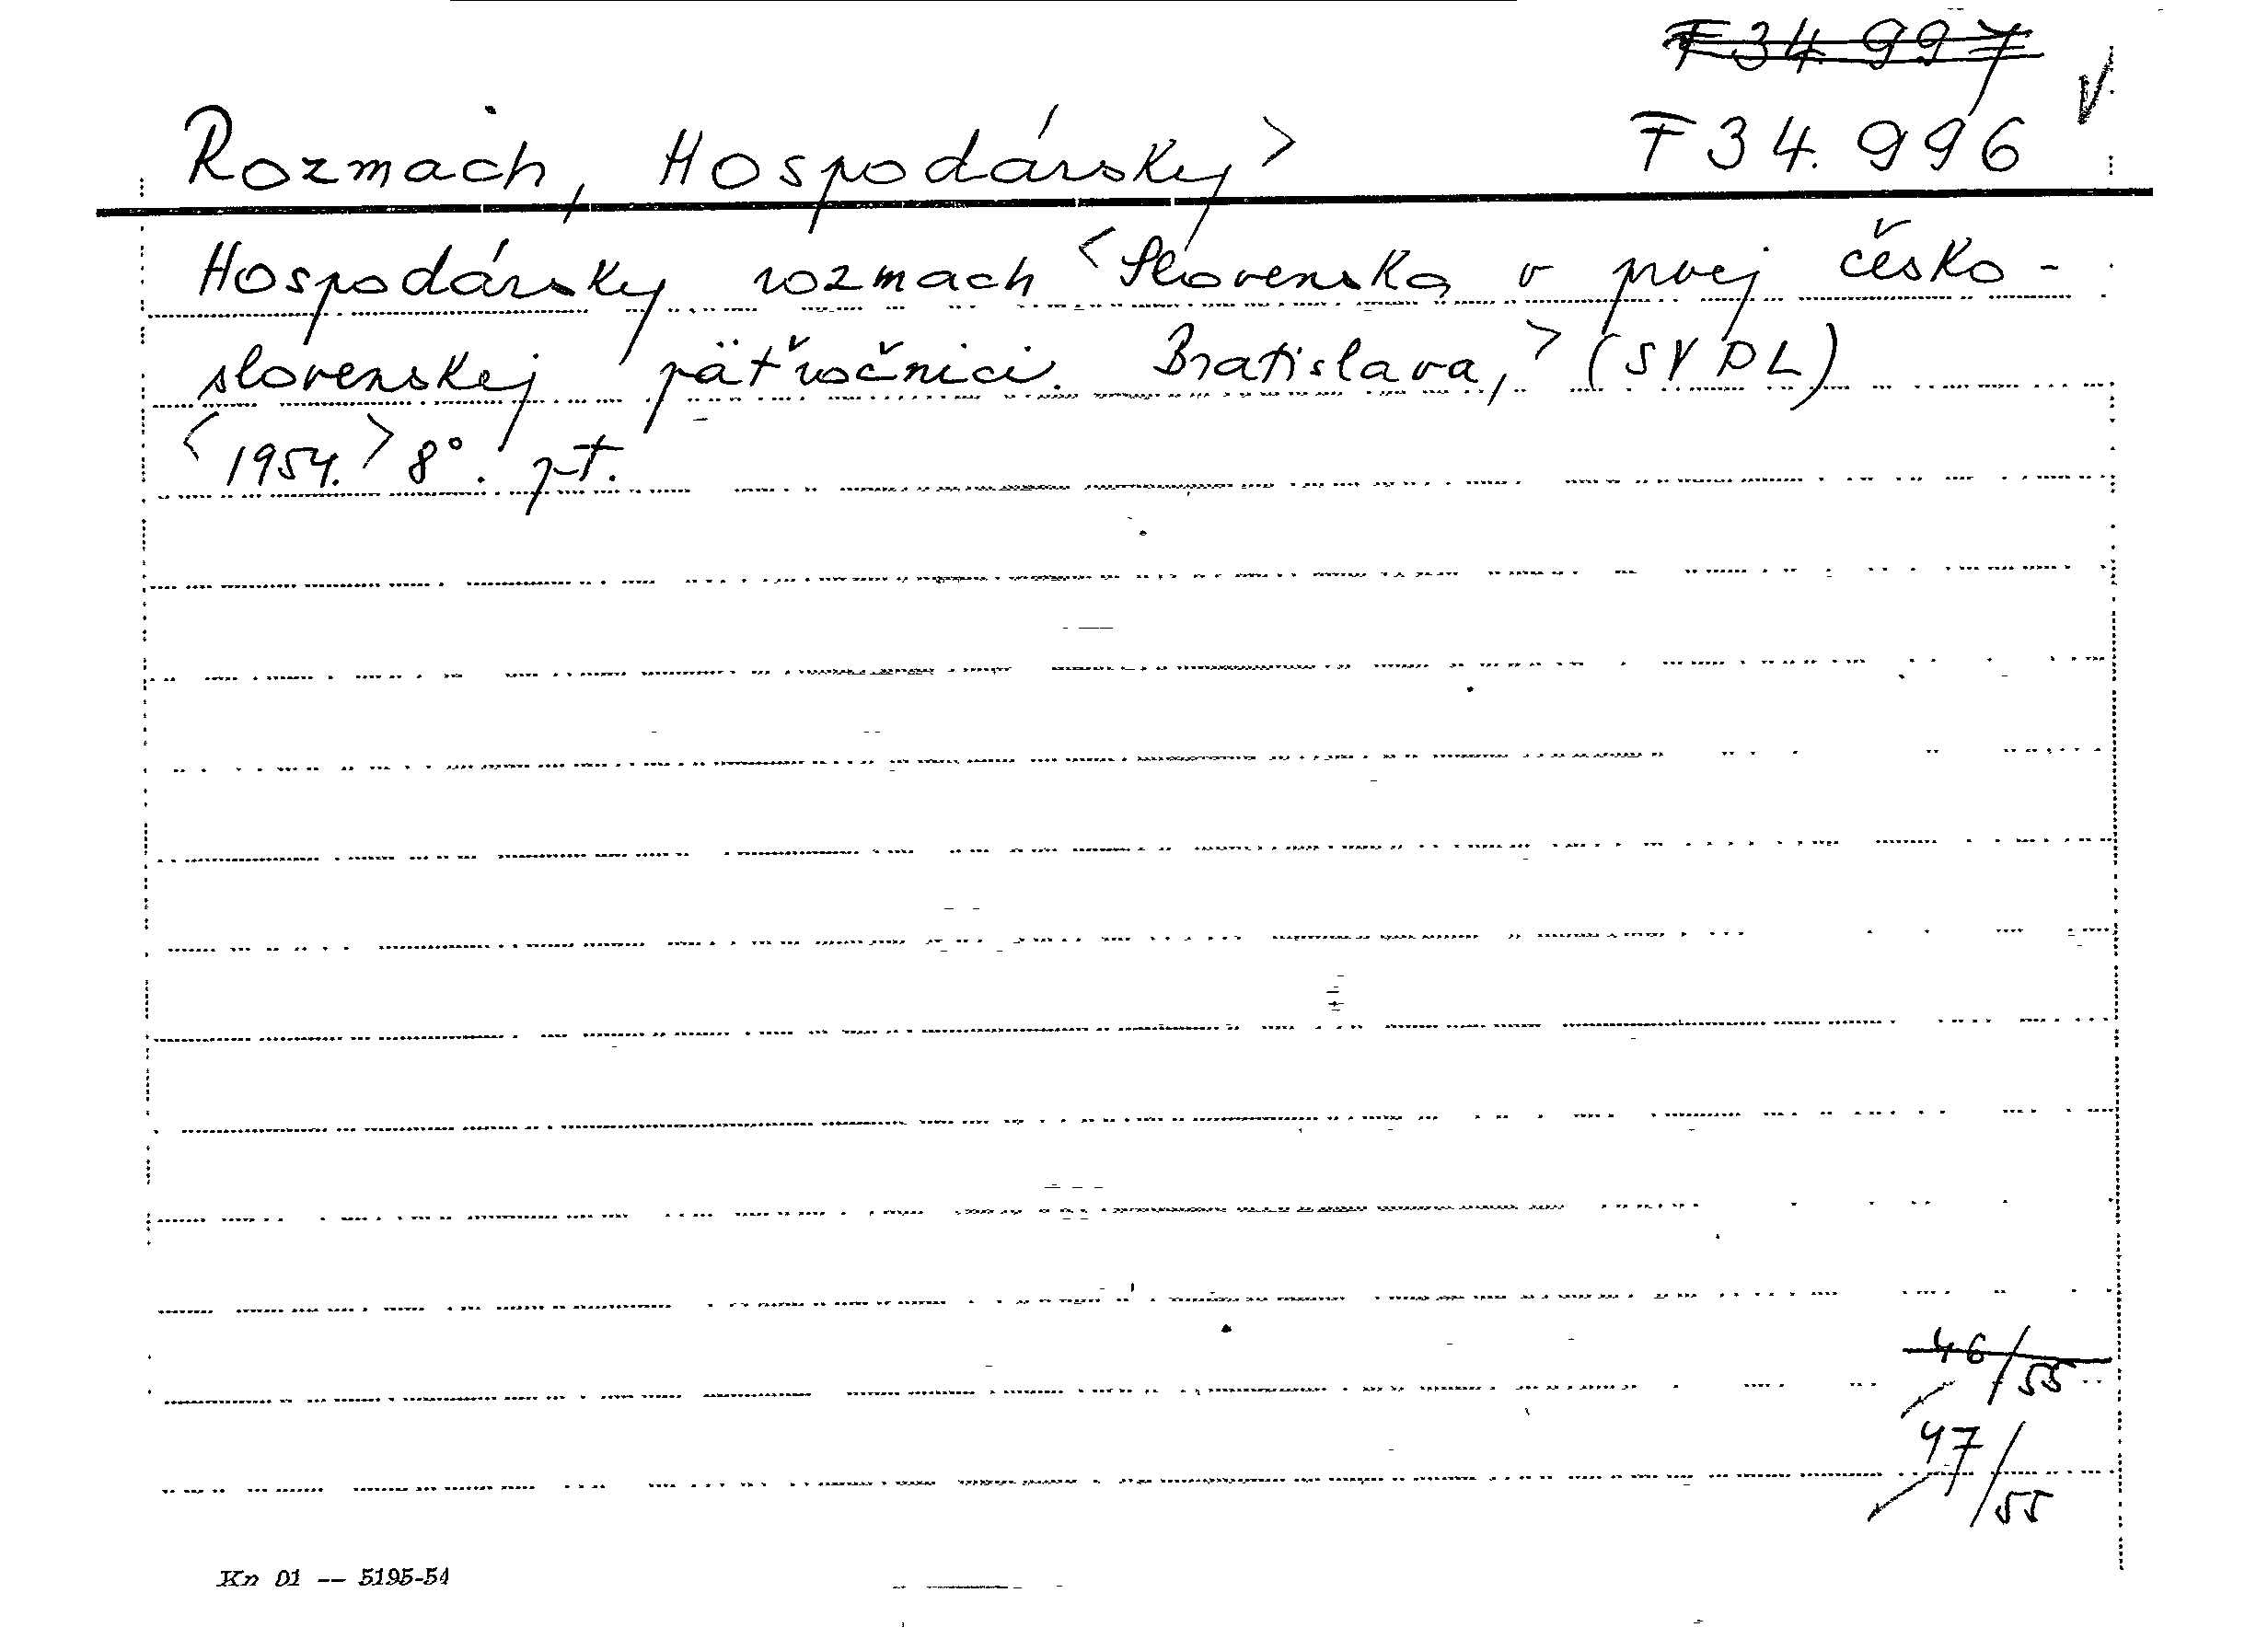 F 34.997
Rozmach, Hospodársky> F 34.996
Hospodársky rozmach <Slovenska v prvej česko-
slovenskej päťročnici. Bratislava,> (SVPL)
<1954.> 8°. pt.
46/55
47/55
Kn 01 -- 5195-54